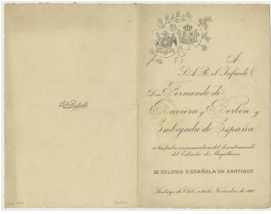 A
S.A.R. el Infante
Don Fernando de
Baviera y Borbón y
Embajada de España
del Estrecho de Magallanes
LA COLONIA ESPAÑOLA DE SANTIAGO
Santiago de Chile, Noviembre de